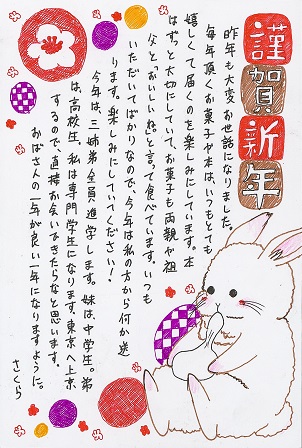 謹賀新年
昨年も大変お世話になりました。
毎年頂くお菓子や本は、いつもとても
嬉しくて届くのを楽しみにしています。本
はずっと大切にしていて、お菓子も両親や祖
父と「おいしいね」と言って食べています。いつも
いただいてばかりなので、今年は私の方から何か送
ります。楽しみにしていてください!
今年は、三姉弟全員進学します。妹は、中学生。弟
は、高校生。私は専門学生になります。東京へ上京
するので、直接お会いできたらなと思います。
おばさんの一年が良い一年になりますように。
さくら